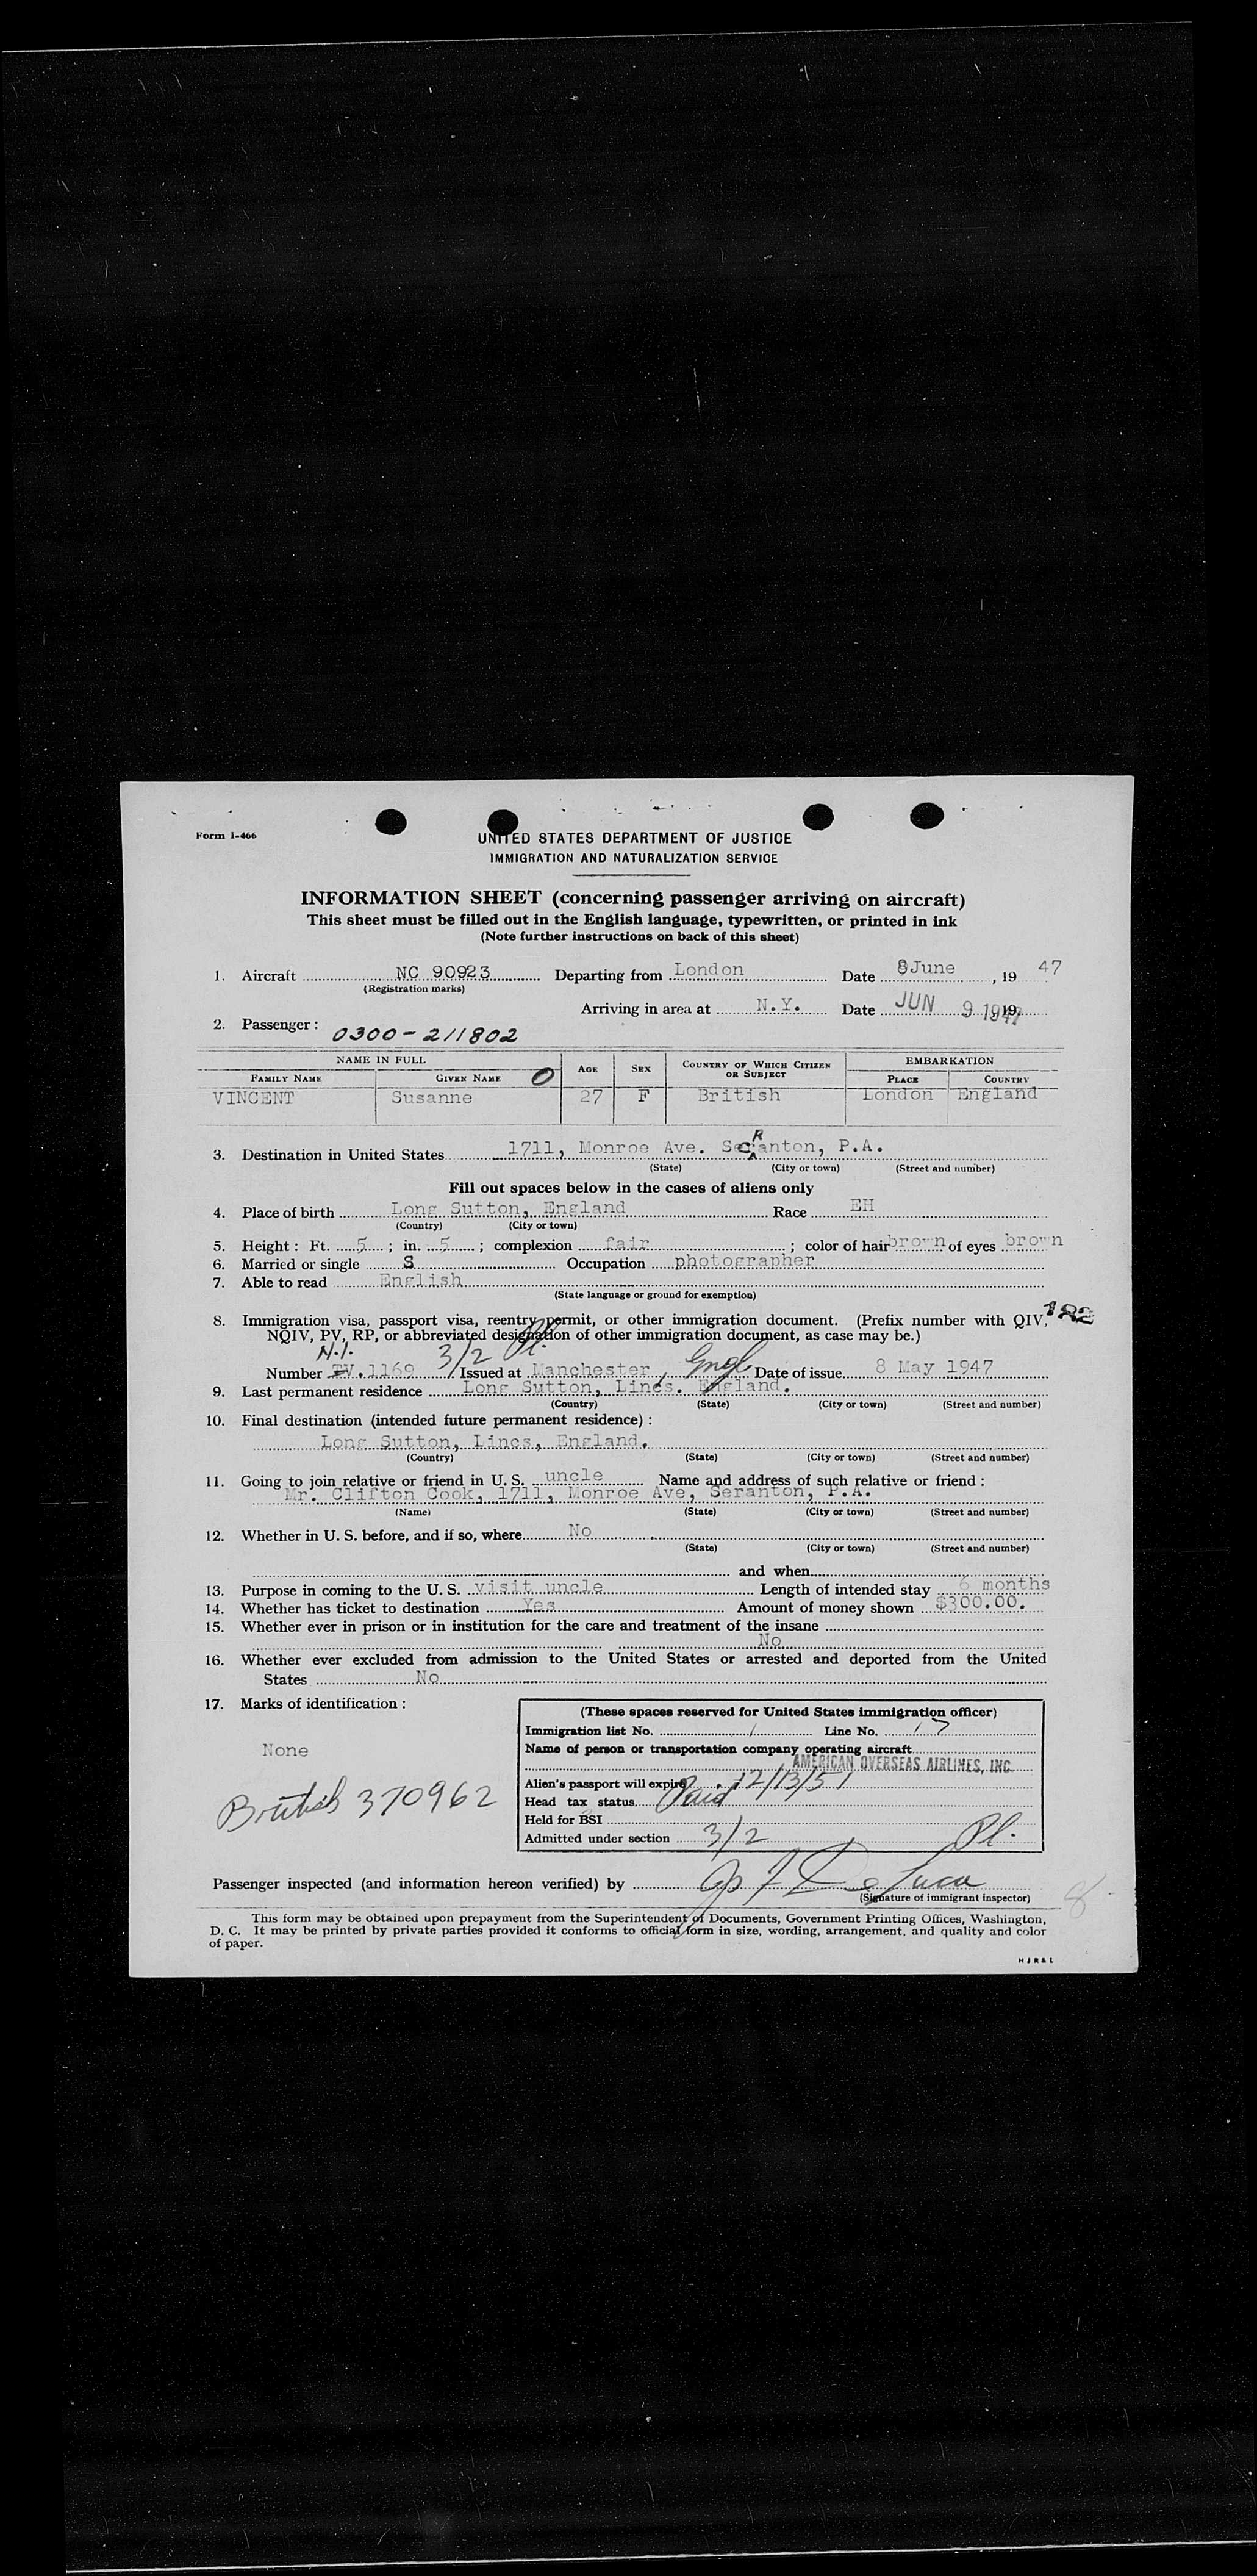 Form I-466
UNITED STATES DEPARTMENT OF JUSTICE
IMMIGRATION AND NATURALIZATION SERVICE
INFORMATION SHEET (concerning passenger arriving on aircraft)
This sheet must be filled out in the English language, typewritten, or printed in ink
(Note further instructions on back of this sheet)
1. Aircraft NC 90923 Departing from London Date 8 June, 19 47
(Registration marks)
Arriving in area at N.Y. Date JUN 9 1947 19
2. Passenger: 0300-211802
NAME IN FULL AGE SEX COUNTRY OF WHICH CITIZEN OR SUBJECT EMBARKATION
FAMILY NAME GIVEN NAME O PLACE COUNTRY
VINCENT Susanne 27 F British London England
3. Destination in United States 1711, Monroe Ave. ScRanton, P.A.
(State) (City or town) (Street and number)
Fill out spaces below in the cases of aliens only
4. Place of birth Long Sutton, England Race EH
(Country) (City or town)
5. Height: Ft. 5; in. 5; complexion fair; color of hair brown of eyes brown
6. Married or single S Occupation photographer
7. Able to read English
(State language or ground for exemption)
8. Immigration visa, passport visa, reentry permit, or other immigration document. (Prefix number with QIV,
NQIV, PV, RP, or abbreviated designation of other immigration document, as case may be.)
3/2 Pl.
Number TV.1169 Issued at Manchester, Engl Date of issue 8 May 1947
9. Last permanent residence Long Sutton, Lincs. England.
(Country) (State) (City or town) (Street and number)
10. Final destination (intended future permanent residence):
Long Sutton, Lincs, England.
(Country) (State) (City or town) (Street and number)
11. Going to join relative or friend in U. S. uncle Name and address of such relative or friend:
Mr. Clifton Cook, 1711, Monroe Ave, Seranton, P.A.
(Name) (State) (City or town) (Street and number)
12. Whether in U. S. before, and if so, where No
(State) (City or town) (Street and number)
and when
13. Purpose in coming to the U. S. visit uncle Length of intended stay 6 months
14. Whether has ticket to destination Yes Amount of money shown $300.00.
15. Whether ever in prison or in institution for the care and treatment of the insane
No
16. Whether ever excluded from admission to the United States or arrested and deported from the United
States No
17. Marks of identification:
None
British 370962
(These spaces reserved for United States immigration officer)
Immigration list No. 1 Line No. 17
Name of person or transportation company operating aircraft
AMERICAN OVERSEAS AIRLINES, INC.
Alien's passport will expire 12/13/51
Head tax status Paid
Held for BSI
Admitted under section 3/2 Pl.
Passenger inspected (and information hereon verified) by
(Signature of immigrant inspector)
This form may be obtained upon prepayment from the Superintendent of Documents, Government Printing Offices, Washington,
D. C. It may be printed by private parties provided it conforms to official form in size, wording, arrangement, and quality and color
of paper.